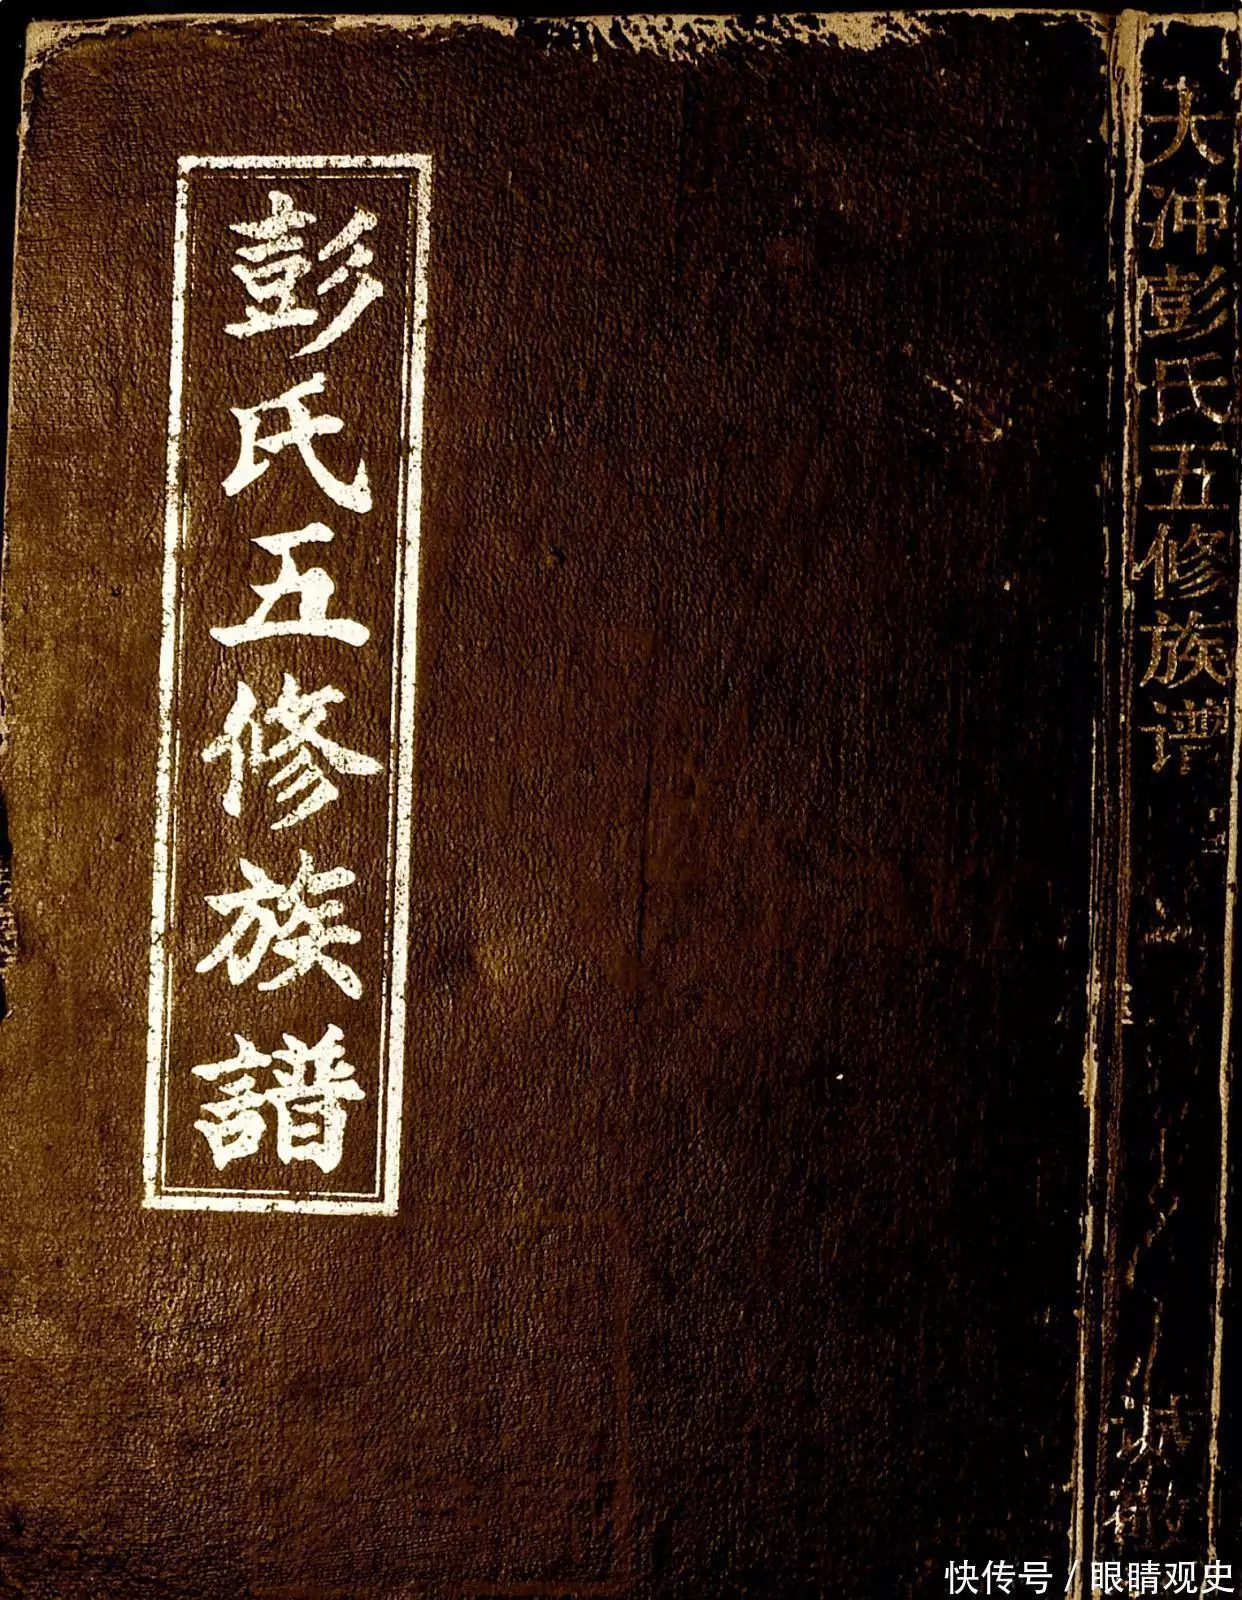 彭氏五修族譜
大冲彭氏五修族谱
诚敬
快传号/眼睛观史